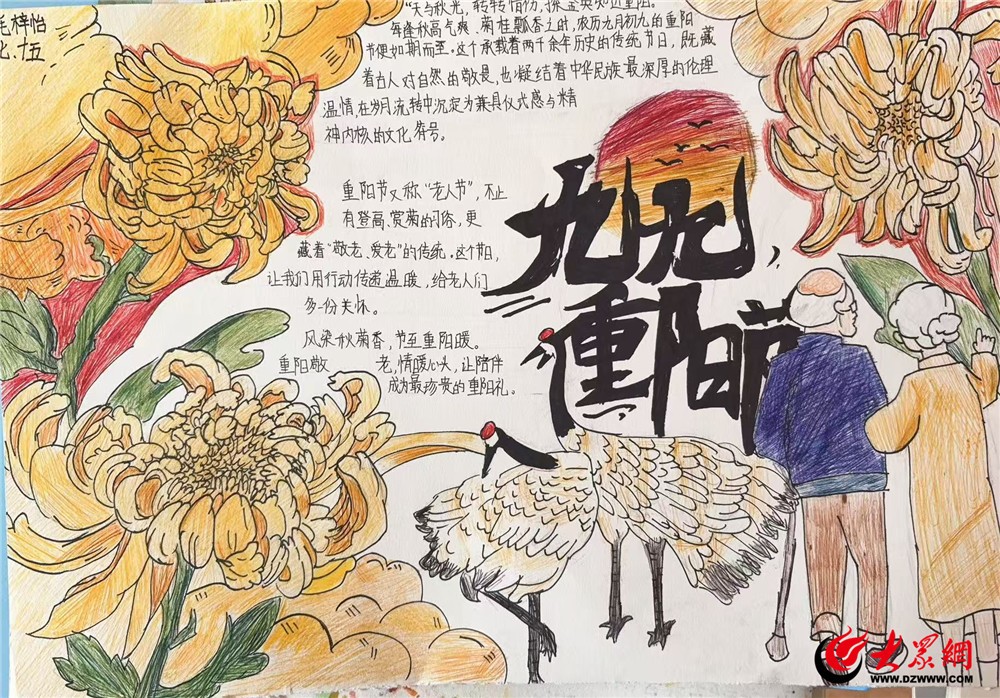 梓怡
"天与秋光,转转情伤,探金英知近重阳。"
每逢秋高气爽、菊桂飘香之时,农历九月初九的重阳
节便如期而至。这个承载着两千余年历史的传统节日,既藏
着古人对自然的敬畏,也凝结着中华民族最深厚的伦理
温情,在岁月流转中沉淀为兼具仪式感与精
神内核的文化符号。
九九,
重阳节
重阳节又称"老人节",不止
有登高、赏菊的习俗,更
藏着"敬老、爱老"的传统。这个节日,
让我们用行动传递温暖,给老人们
多一份关怀。
风染秋菊香,节至重阳暖。
重阳敬老,情暖心头,让陪伴
成为最珍贵的重阳礼。
大众網
WWW.DZWWW.COM